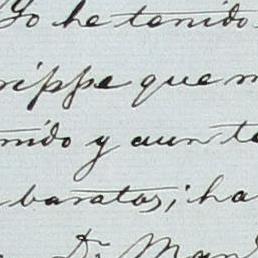 Yo he tenido
rippe que m
nido y aun te
baratos; ha
Dr. Man